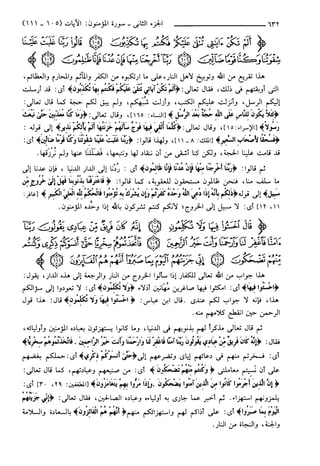 ٦٣٢ الجزء الثانى - سورة المؤمنون: الآيات (١٠٥ - ١١١)
﴿ أَلَمْ تَكُنْ آيَاتِي تُتْلَى عَلَيْكُمْ فَكُنتُم بِهَا تُكَذِّبُونَ قَالُوا رَبَّنَا غَلَبَتْ عَلَيْنَا
هذا تقريع من الله وتوبيخ لأهل النار، على ما ارتكبوه من الكفر والمآثم والمحارم والعظائم،
التى أوبقتهم فى ذلك، فقال تعالى: ﴿أَلَمْ تَكُنْ آيَاتِي تُتْلَى عَلَيْكُمْ فَكُنتُم بِهَا تُكَذِّبُونَ﴾ أى: قد أرسلت
إليكم الرسل، وأنزلت عليكم الكتب، وأزلت شُبَهكم، ولم يبق لكم حجة كما قال تعالى:
﴿لِئَلَّا يَكُونَ لِلنَّاسِ عَلَى اللَّهِ حُجَّةٌ بَعْدَ الرُّسُلِ﴾ [النساء: ١٦٥]، وقال تعالى: ﴿وَمَا كُنَّا مُعَذِّبِينَ حَتَّى نَبْعَثَ
رَسُولًا﴾ [الإسراء: ١٥]، وقال تعالى: ﴿كُلَّمَا أُلْقِيَ فِيهَا فَوْجٌ سَأَلَهُمْ خَزَنَتُهَا أَلَمْ يَأْتِكُمْ نَذِيرٌ﴾ إلى قوله :
﴿فَسُحْقًا لِأَصْحَابِ السَّعِيرِ﴾ [الملك: ٨ - ١١]، ولهذا قالوا: ﴿رَبَّنَا غَلَبَتْ عَلَيْنَا شِقْوَتُنَا وَكُنَّا قَوْمًا ضَالِّينَ﴾ أى:
قد قامت علينا الحجة، ولكن كنا أشقى من أن ننقاد لها ونتبعها، فضللنا عنها ولم نُرزقها.
ثم قالوا: ﴿رَبَّنَا أَخْرِجْنَا مِنْهَا فَإِنْ عُدْنَا فَإِنَّا ظَالِمُونَ﴾ أى : ردَّنا إلى الدار الدنيا ، فإن عدنا إلى
ما سلف منا، فنحن ظالمون مستحقون للعقوبة، كما قالوا: ﴿فَاعْتَرَفْنَا بِذُنُوبِنَا فَهَلْ إِلَى خُرُوجٍ مِّن
سَبِيلٍ﴾ إلى قوله ﴿ذَلِكُم بِأَنَّهُ إِذَا دُعِيَ اللَّهُ وَحْدَهُ كَفَرْتُمْ وَإِن يُشْرَكْ بِهِ تُؤْمِنُوا فَالْحُكْمُ لِلَّهِ الْعَلِيِّ الْكَبِيرِ﴾ [غافر:
١١، ١٢] أى: لا سبيل إلى الخروج؛ لأنكم كنتم تشركون بالله إذا وحَّده المؤمنون.
هذا جواب من الله تعالى للكفار إذا سألوا الخروج من النار والرجعة إلى هذه الدار، يقول:
﴿اخْسَئُوا فِيهَا﴾ أى: امكثوا فيها صاغرين مُهانين أذلاء ﴿وَلَا تُكَلِّمُونِ﴾ أى: لا تعودوا إلى سؤالكم
هذا، فإنه لا جواب لكم عندى .قال ابن عباس: ﴿اخْسَئُوا فِيهَا وَلَا تُكَلِّمُونِ﴾ قال: هذا قول
الرحمن حين انقطع كلامهم منه.
ثم قال تعالى مذكراً لهم بذنوبهم فى الدنيا، وما كانوا يستهزئون بعباده المؤمنين وأوليائه،
فقال: ﴿إِنَّهُ كَانَ فَرِيقٌ مِّنْ عِبَادِي يَقُولُونَ رَبَّنَا آمَنَّا فَاغْفِرْ لَنَا وَارْحَمْنَا وَأَنتَ خَيْرُ الرَّاحِمِينَ . فَاتَّخَذْتُمُوهُمْ سِخْرِيًّا﴾
أى: فسخرتم منهم فى دعائهم إياى وتضرعهم إلى ﴿حَتَّى أَنسَوْكُمْ ذِكْرِي﴾ أى: حملكم بغضهم
على أن نسيتم معاملتى ﴿وَكُنتُم مِّنْهُمْ تَضْحَكُونَ﴾ أى: من صنيعهم وعبادتهم، كما قال تعالى:
﴿إِنَّ الَّذِينَ أَجْرَمُوا كَانُوا مِنَ الَّذِينَ آمَنُوا يَضْحَكُونَ . وَإِذَا مَرُّوا بِهِمْ يَتَغَامَزُونَ﴾ [المطففين: ٢٩، ٣٠] أى:
يلمزونهم استهزاء. ثم أخبر عما جازى به أولياءه وعباده الصالحين، فقال تعالى: ﴿إِنِّي جَزَيْتُهُمُ
الْيَوْمَ بِمَا صَبَرُوا﴾ أى: على أذاكم لهم واستهزائكم منهم ﴿أَنَّهُمْ هُمُ الْفَائِزُونَ﴾ بالسعادة والسلامة
والجنة، والنجاة من النار.